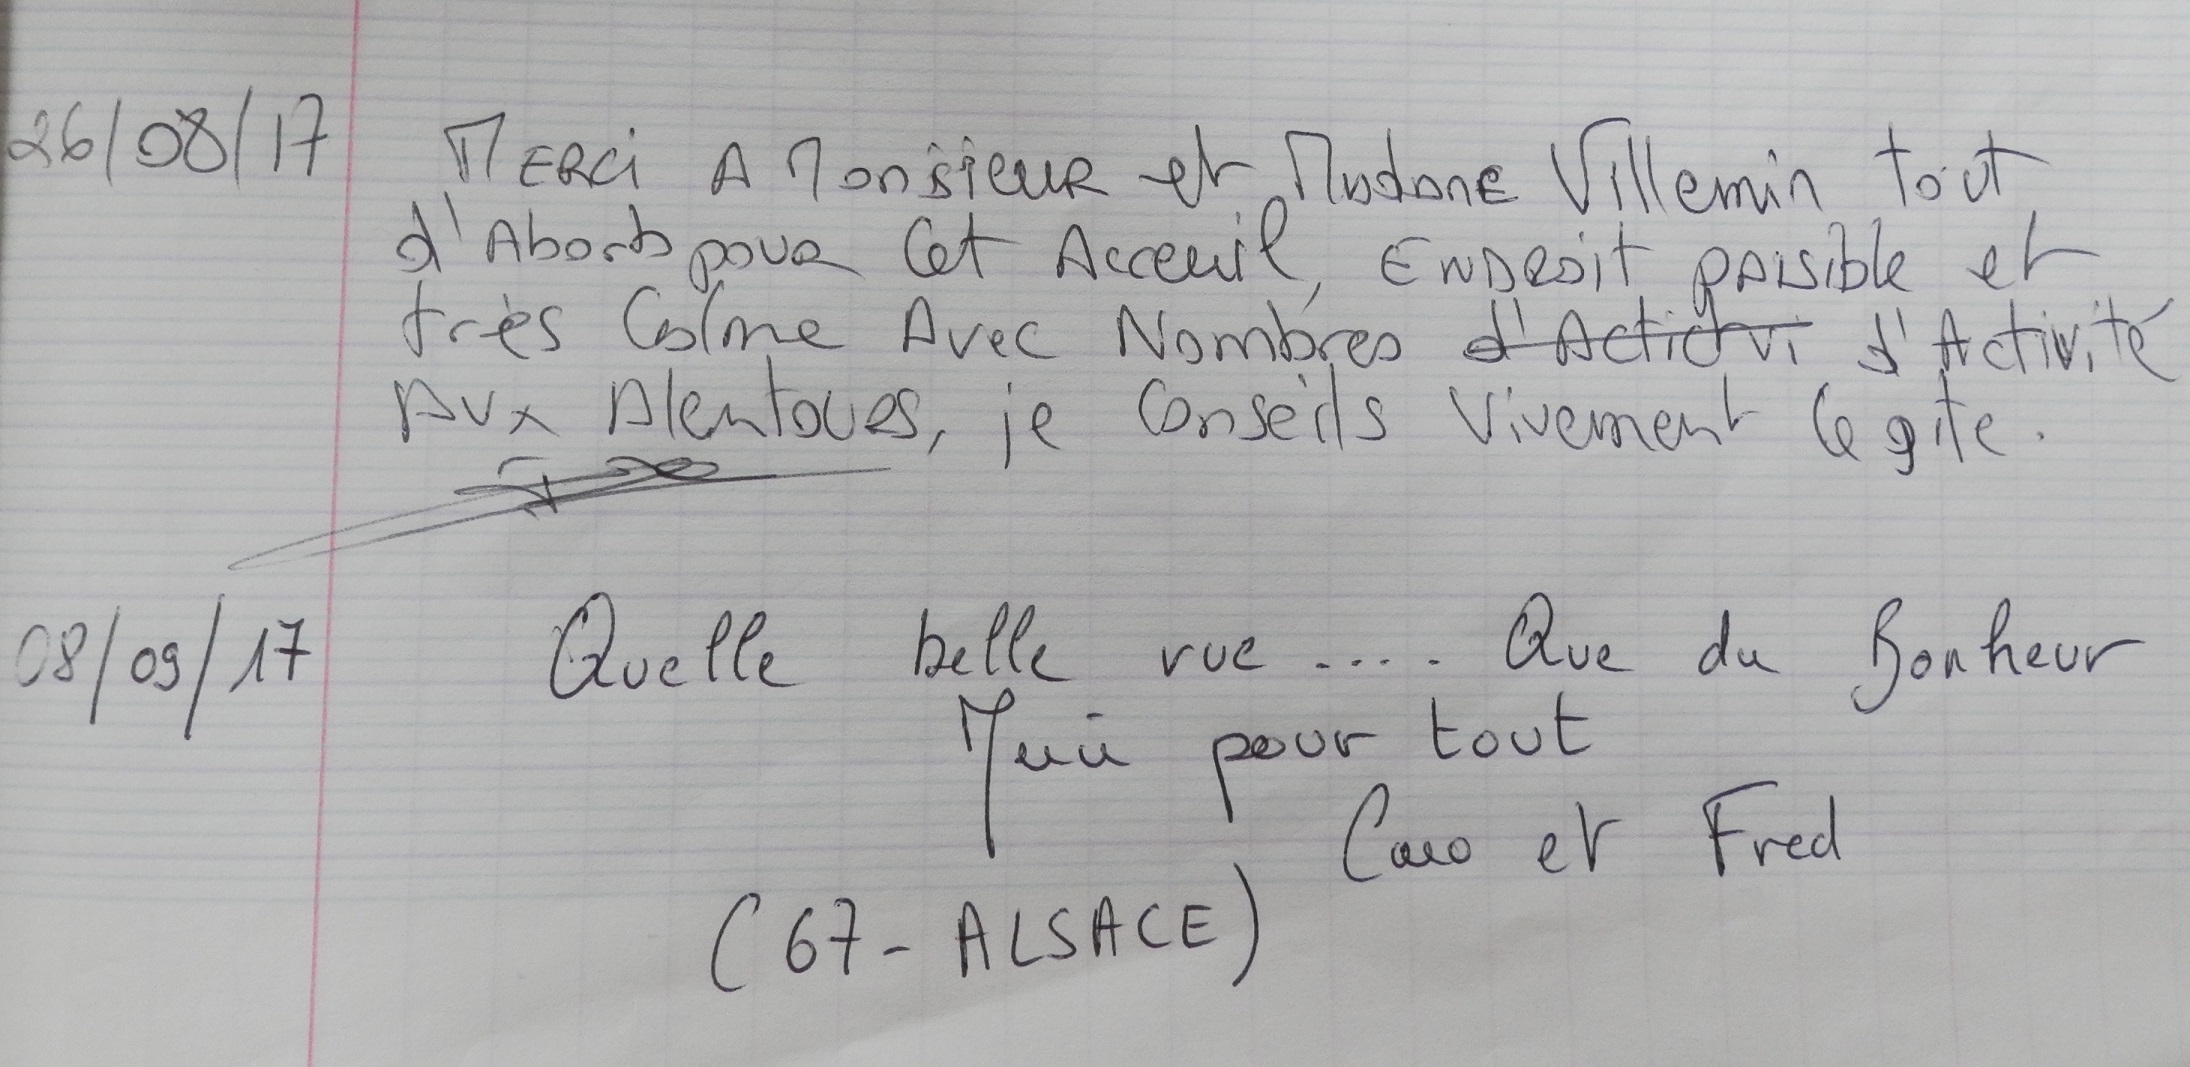 26/08/17 MERCi A Monsieur et Madame Villemin tout
d'Abord pour Cet Acceuil, ENDROit pAisible et
très Calme Avec Nombres d'Actictvi d'Activité
Aux Alentours, je Conseils vivement le gite.
08/09/17 Quelle belle vue .... Que du Bonheur
Merci pour tout
Caro et Fred
(67 - ALSACE)